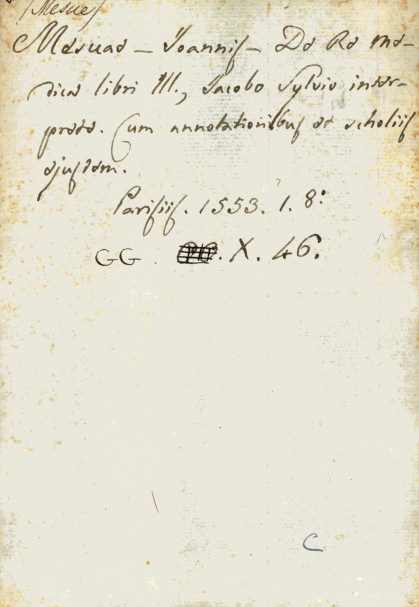 (Mesue)
Mesuae — Joannis — De Re me-
dica libri III., Jacobo Sylvio inter-
prete. Cum annotationibus et scholiis
ejusdem.
Parisiis. 1553. 1. 8°
GG. X. 46.
C